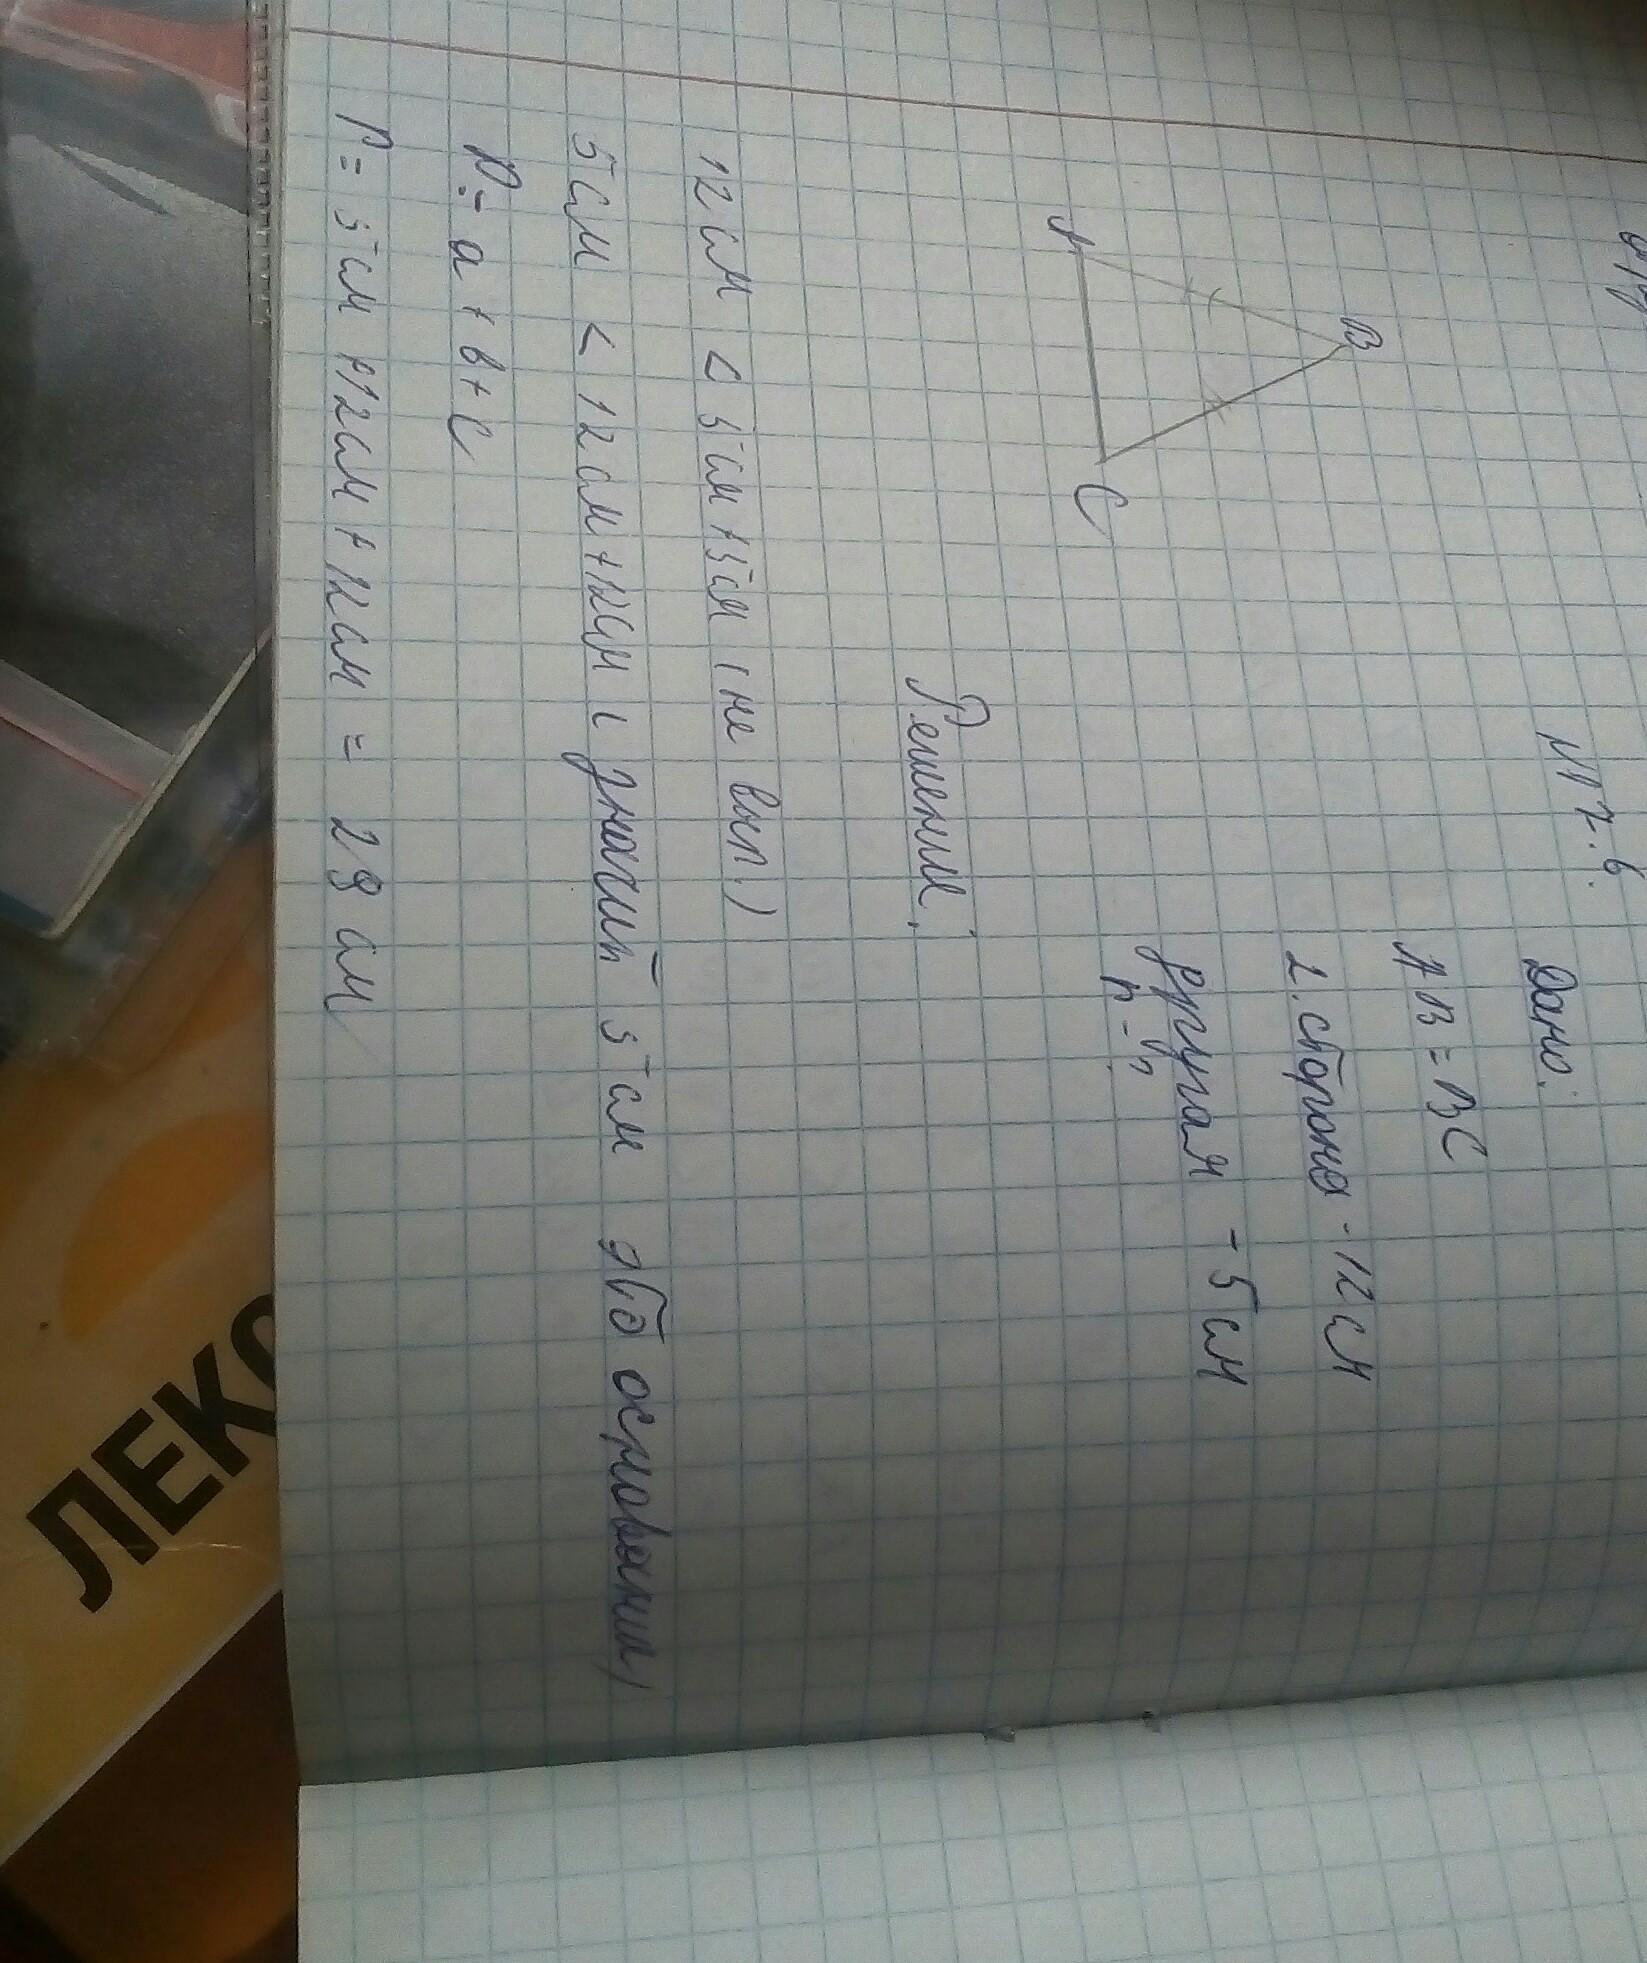 № 7.6.
Дано:
AB = BC
1. сторона - 12 см
другая - 5 см
P - ?
B
A
C
Решение:
12 см < 5 см + 5 см (не вып.)
5 см < 12 см + 12 см (значит 5 см это основание)
P = a + b + c
P = 5 см + 12 см + 12 см = 29 см
ЛЕКС